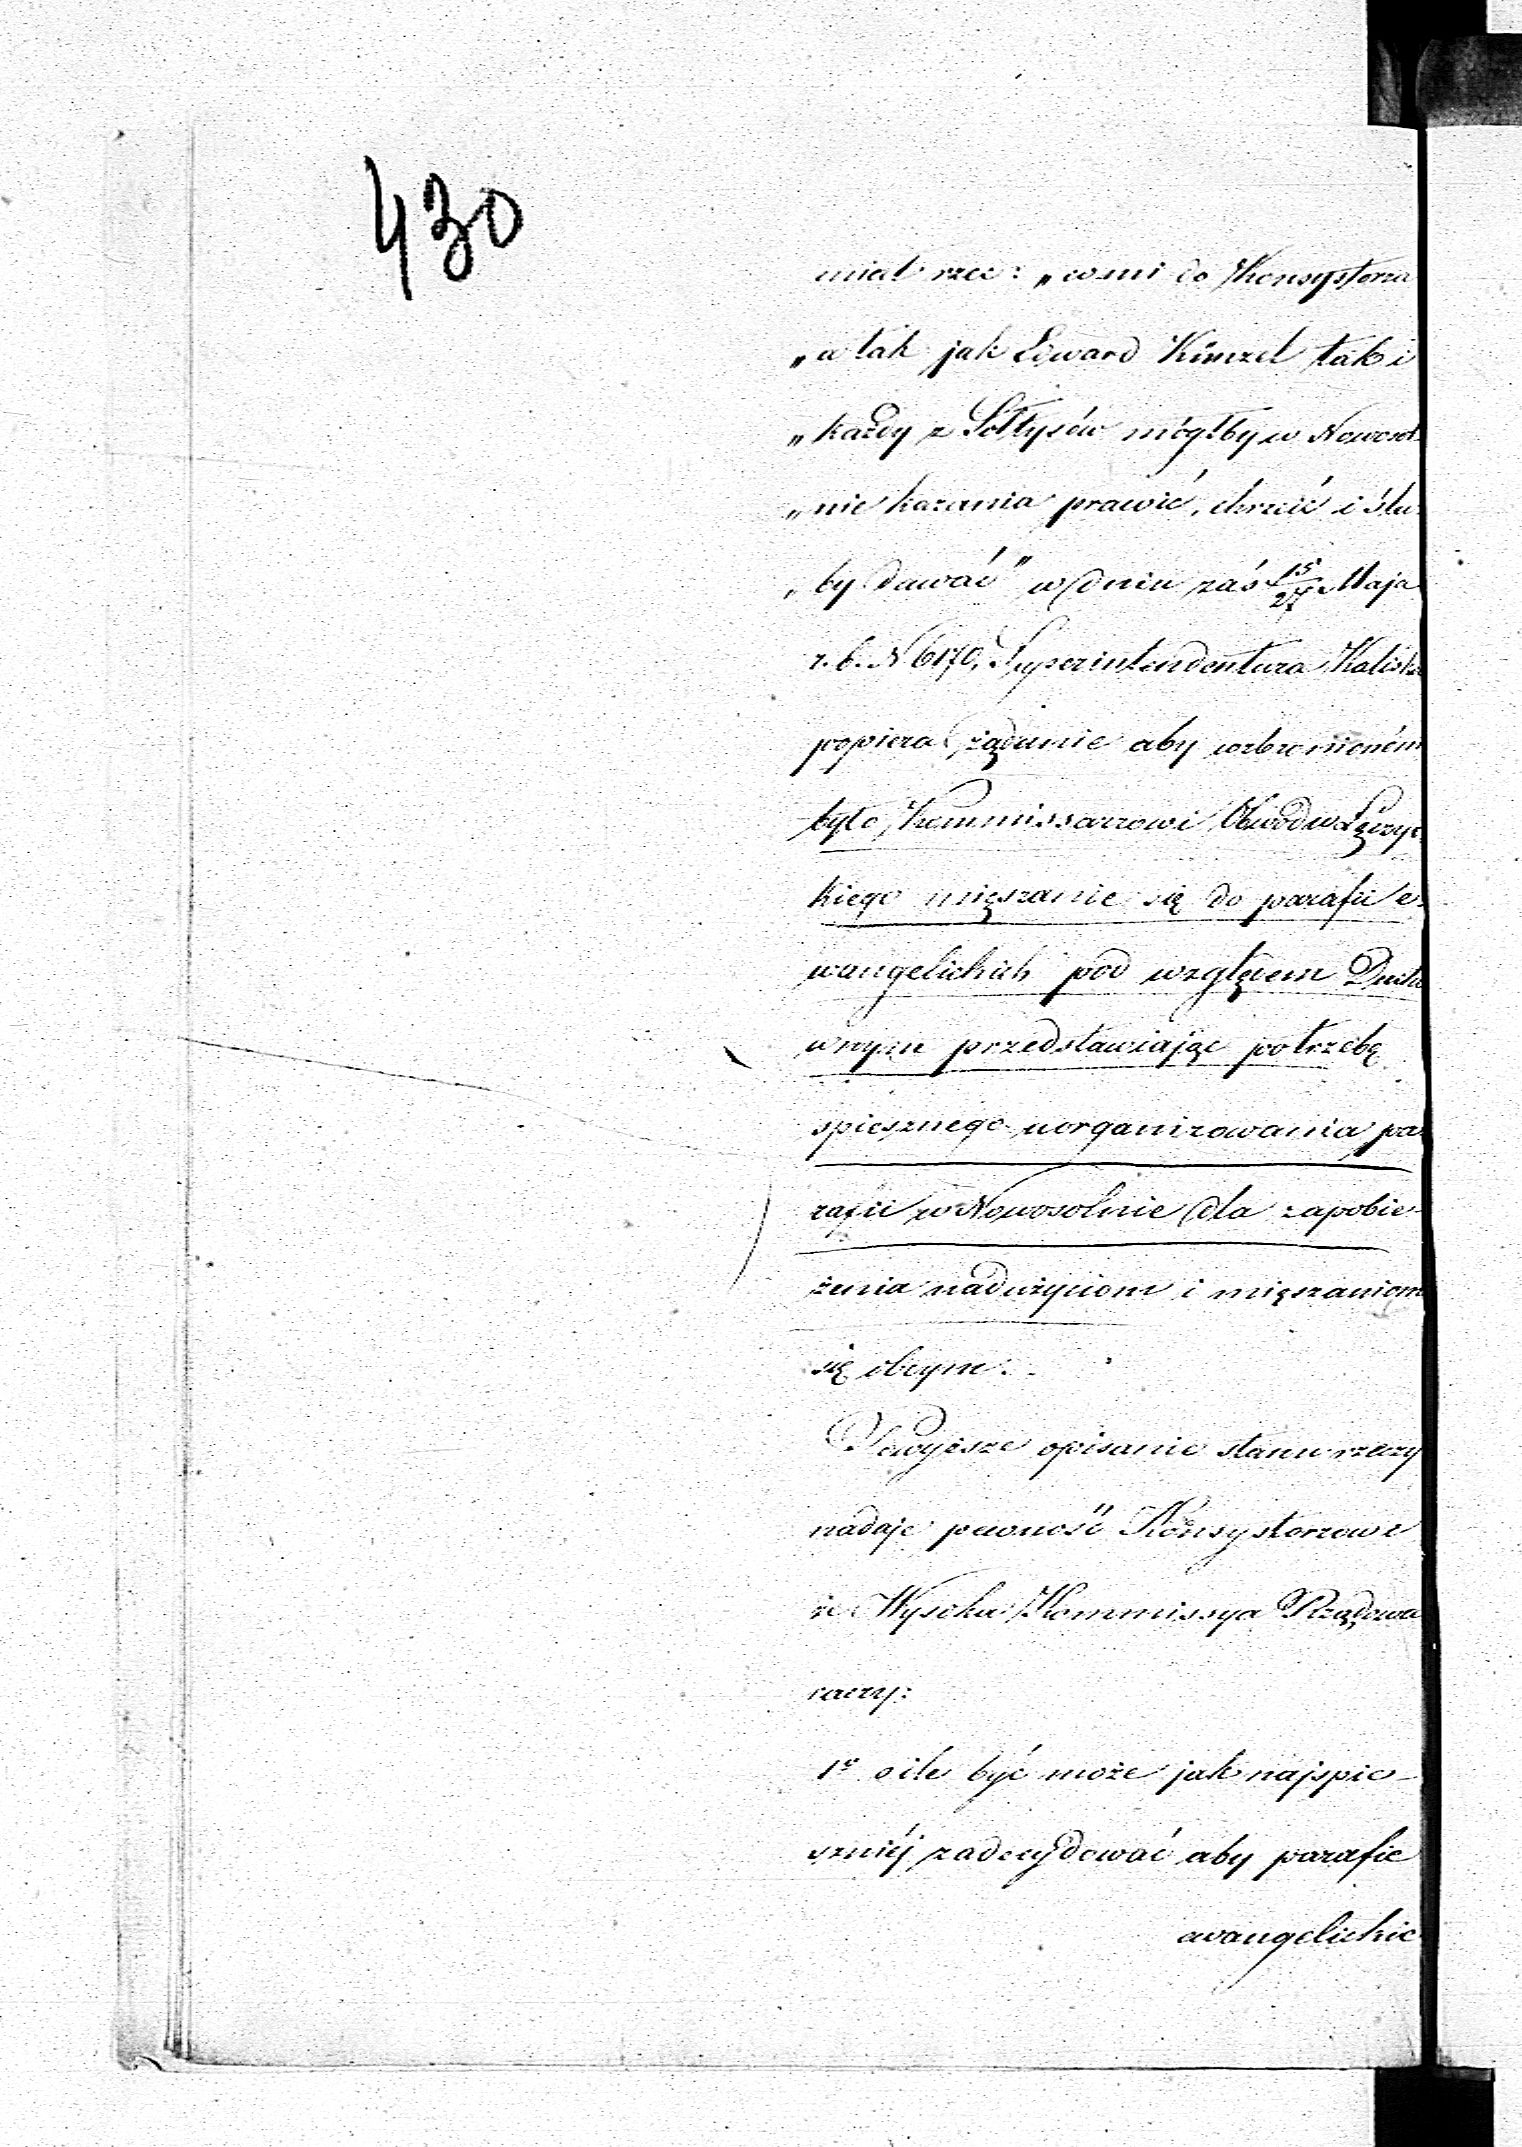 430
miał rzec: „co mi do Konsystorza
„a tak jak Edward Künzel tak i
„każdy z Sołtysów mógłby w Nowosol-
„nie kazania prawić, chrzcić i ślu-
„by dawać" w dniu zaś 15/27 Maja
r. b. N 6170, Superintendentura Kaliska
popiera żądanie aby wzbronioném
było, Kommissarzowi Obwodu Łęczyc-
kiego mięszanie się do parafii e-
wangelickich pod względem Ducho
wnym przedstawiając potrzebę
spiesznego uorganizowania pa-
rafii w Nowosolnie dla zapobie-
żenia nadużyciom i mięszaniom
się obcym.
Powyższe opisanie stanu rzeczy
nadaje pewność Konsystorzowi
że Wysoka Kommissya Rządowa
raczy:
1º o ile być może jak najspie-
szniéj zadecydować aby parafie
ewangelickie